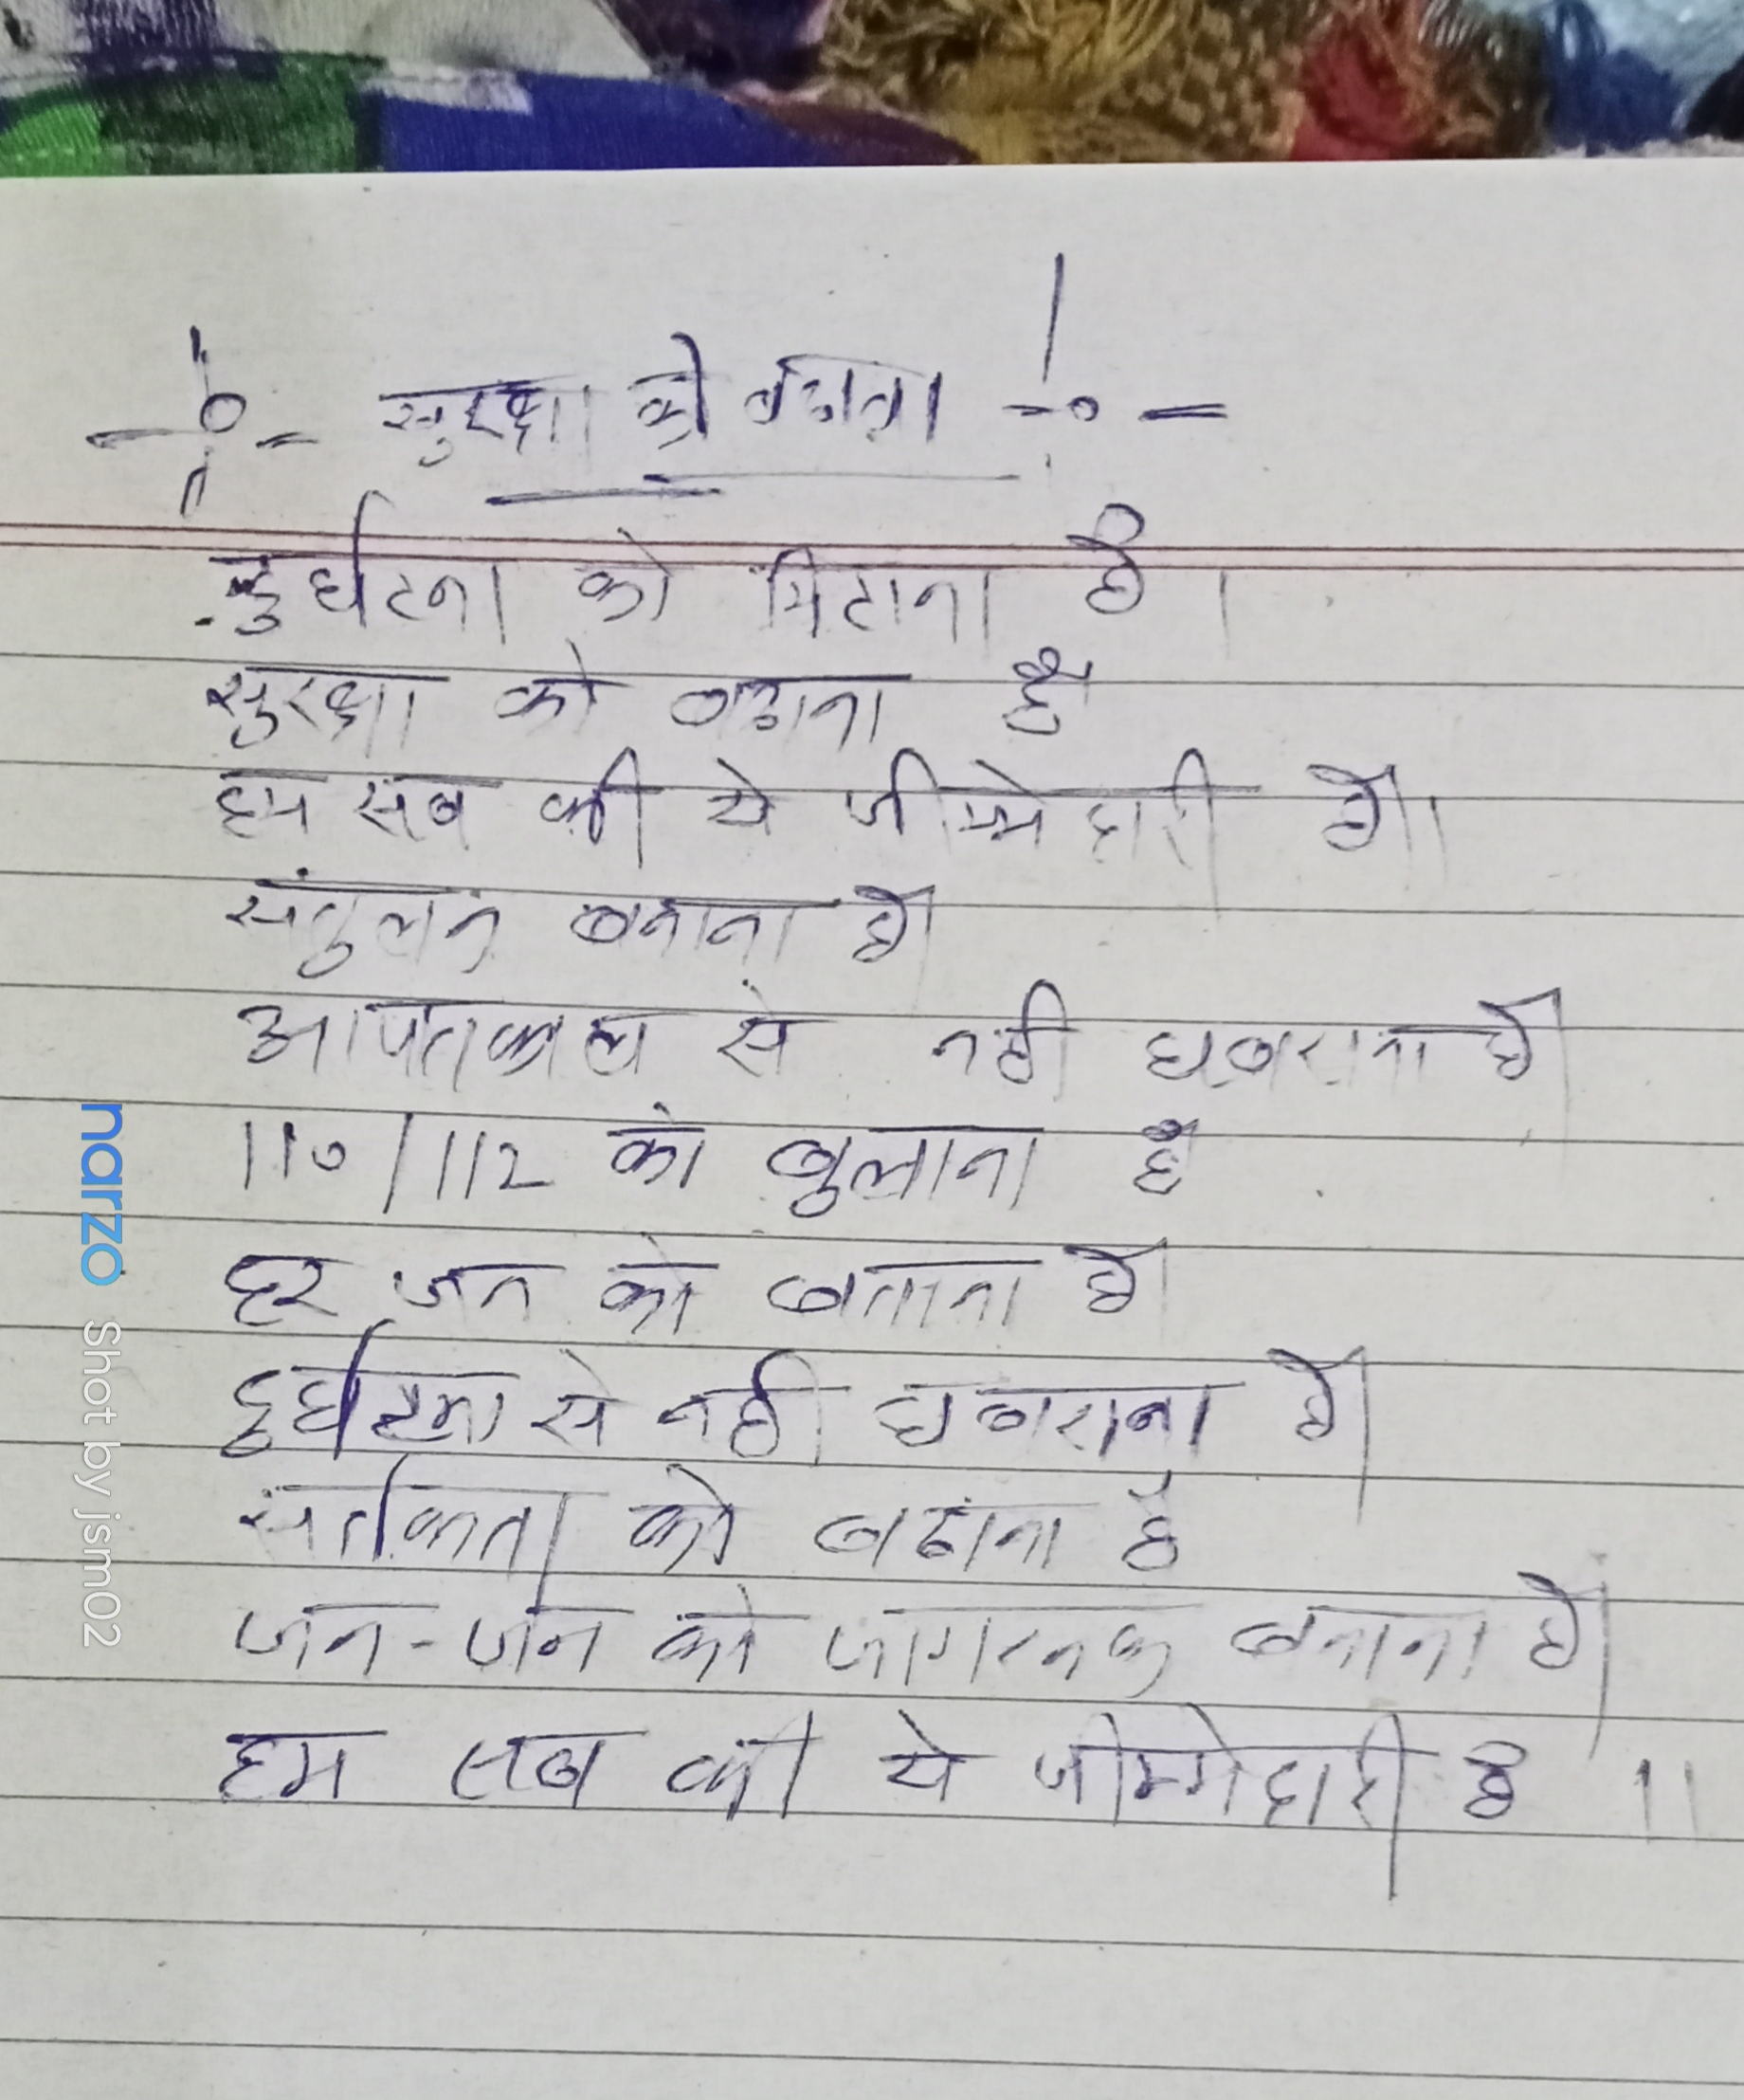 सुरक्षा को बढ़ाना
दुर्घटना को मिटाना है ।
सुरक्षा को बढाना है
हम सब की ये जीम्मेदारी है।
संतुलन बनाना है
आपतकाल से नही घबराना है
110/112 को बुलाना है
हर जन को बताना है
दुर्घटना से नही घबराना है
सर्तकता को बढाना है
जन-जन को जागरूक बनाना है
हम सब की ये जीम्मेदारी है ।।
narzo Shot by jsm02